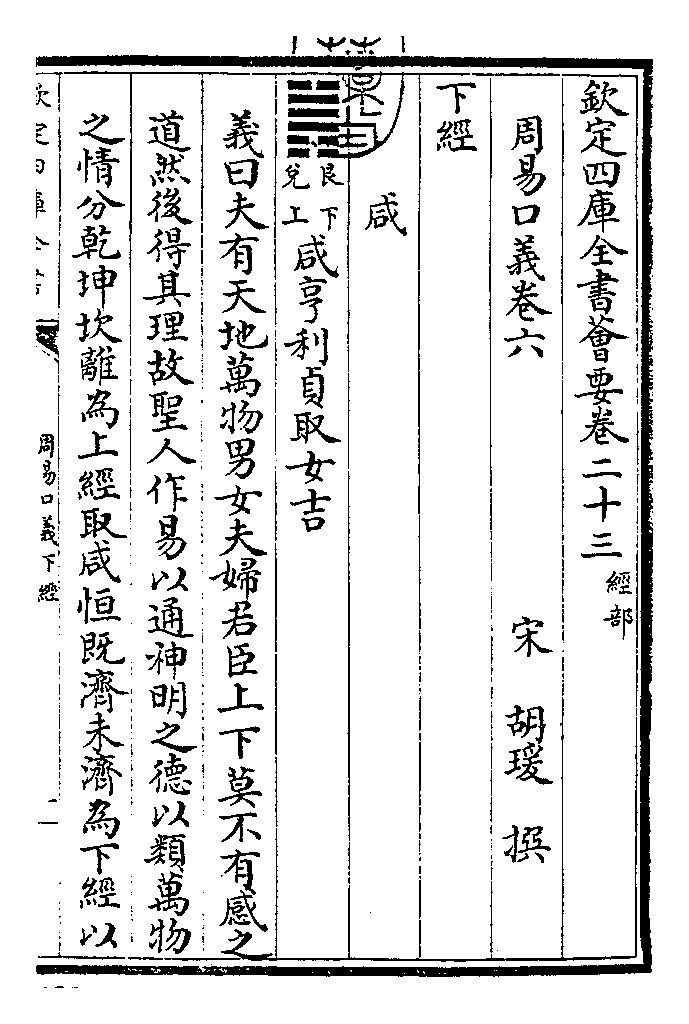 欽定四庫全書薈要卷二十三 經部
周易口義卷六 宋 胡瑗 撰
下經
咸
艮下兌上 咸亨利貞取女吉
義曰夫有天地萬物男女夫婦君臣上下莫不有感之
道然後得其理故聖人作易以通神明之德以類萬物
之情分乾坤坎離為上經取咸恒既濟未濟為下經以
欽定四庫全書
周易口義下經